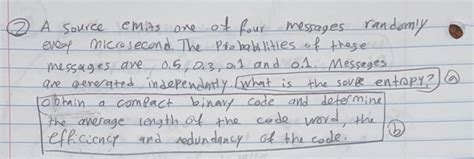 ② A source emits one of four messages randomly
every microsecond. The probabilities of these
messages are 0.5, 0.3, 0.1 and 0.1. Messages
are generated independently. What is the source entropy? ⓐ
obtain a compact binary code and determine
the average length of the code word, the
efficiency and redundancy of the code. ⓑ